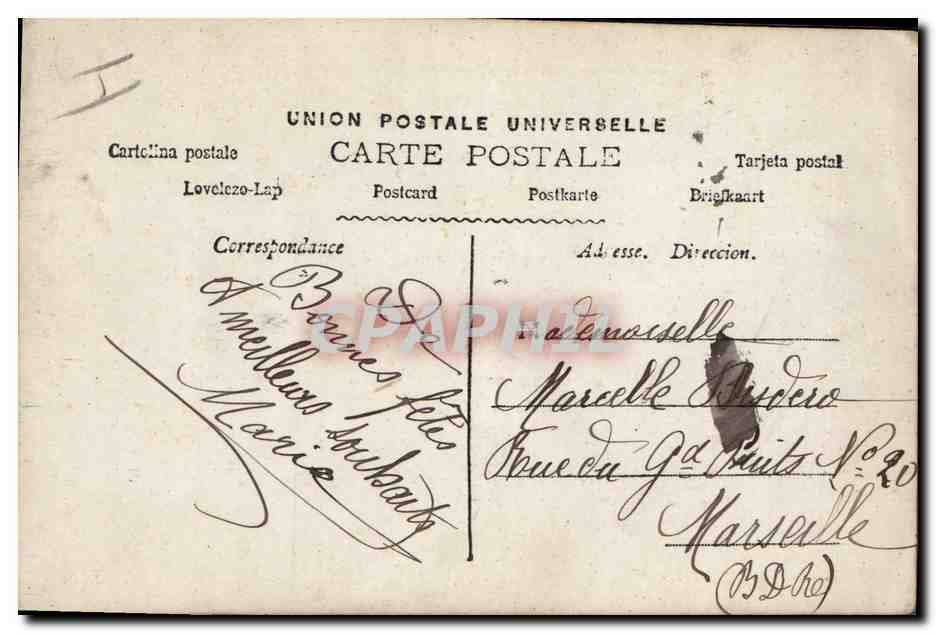 UNION POSTALE UNIVERSELLE
CARTE POSTALE
Cartolina postale
Tarjeta postal
Levelezo-Lap
Postcard
Postkarte
Briefkaart
Correspondance
Adresse. Direccion.
Bonnes fêtes
& meilleurs souhaits
Marie
Mademoiselle
Marcelle
Rue du Gd Puits No 20
Marseille
(B D Rh)
CPAPHIL